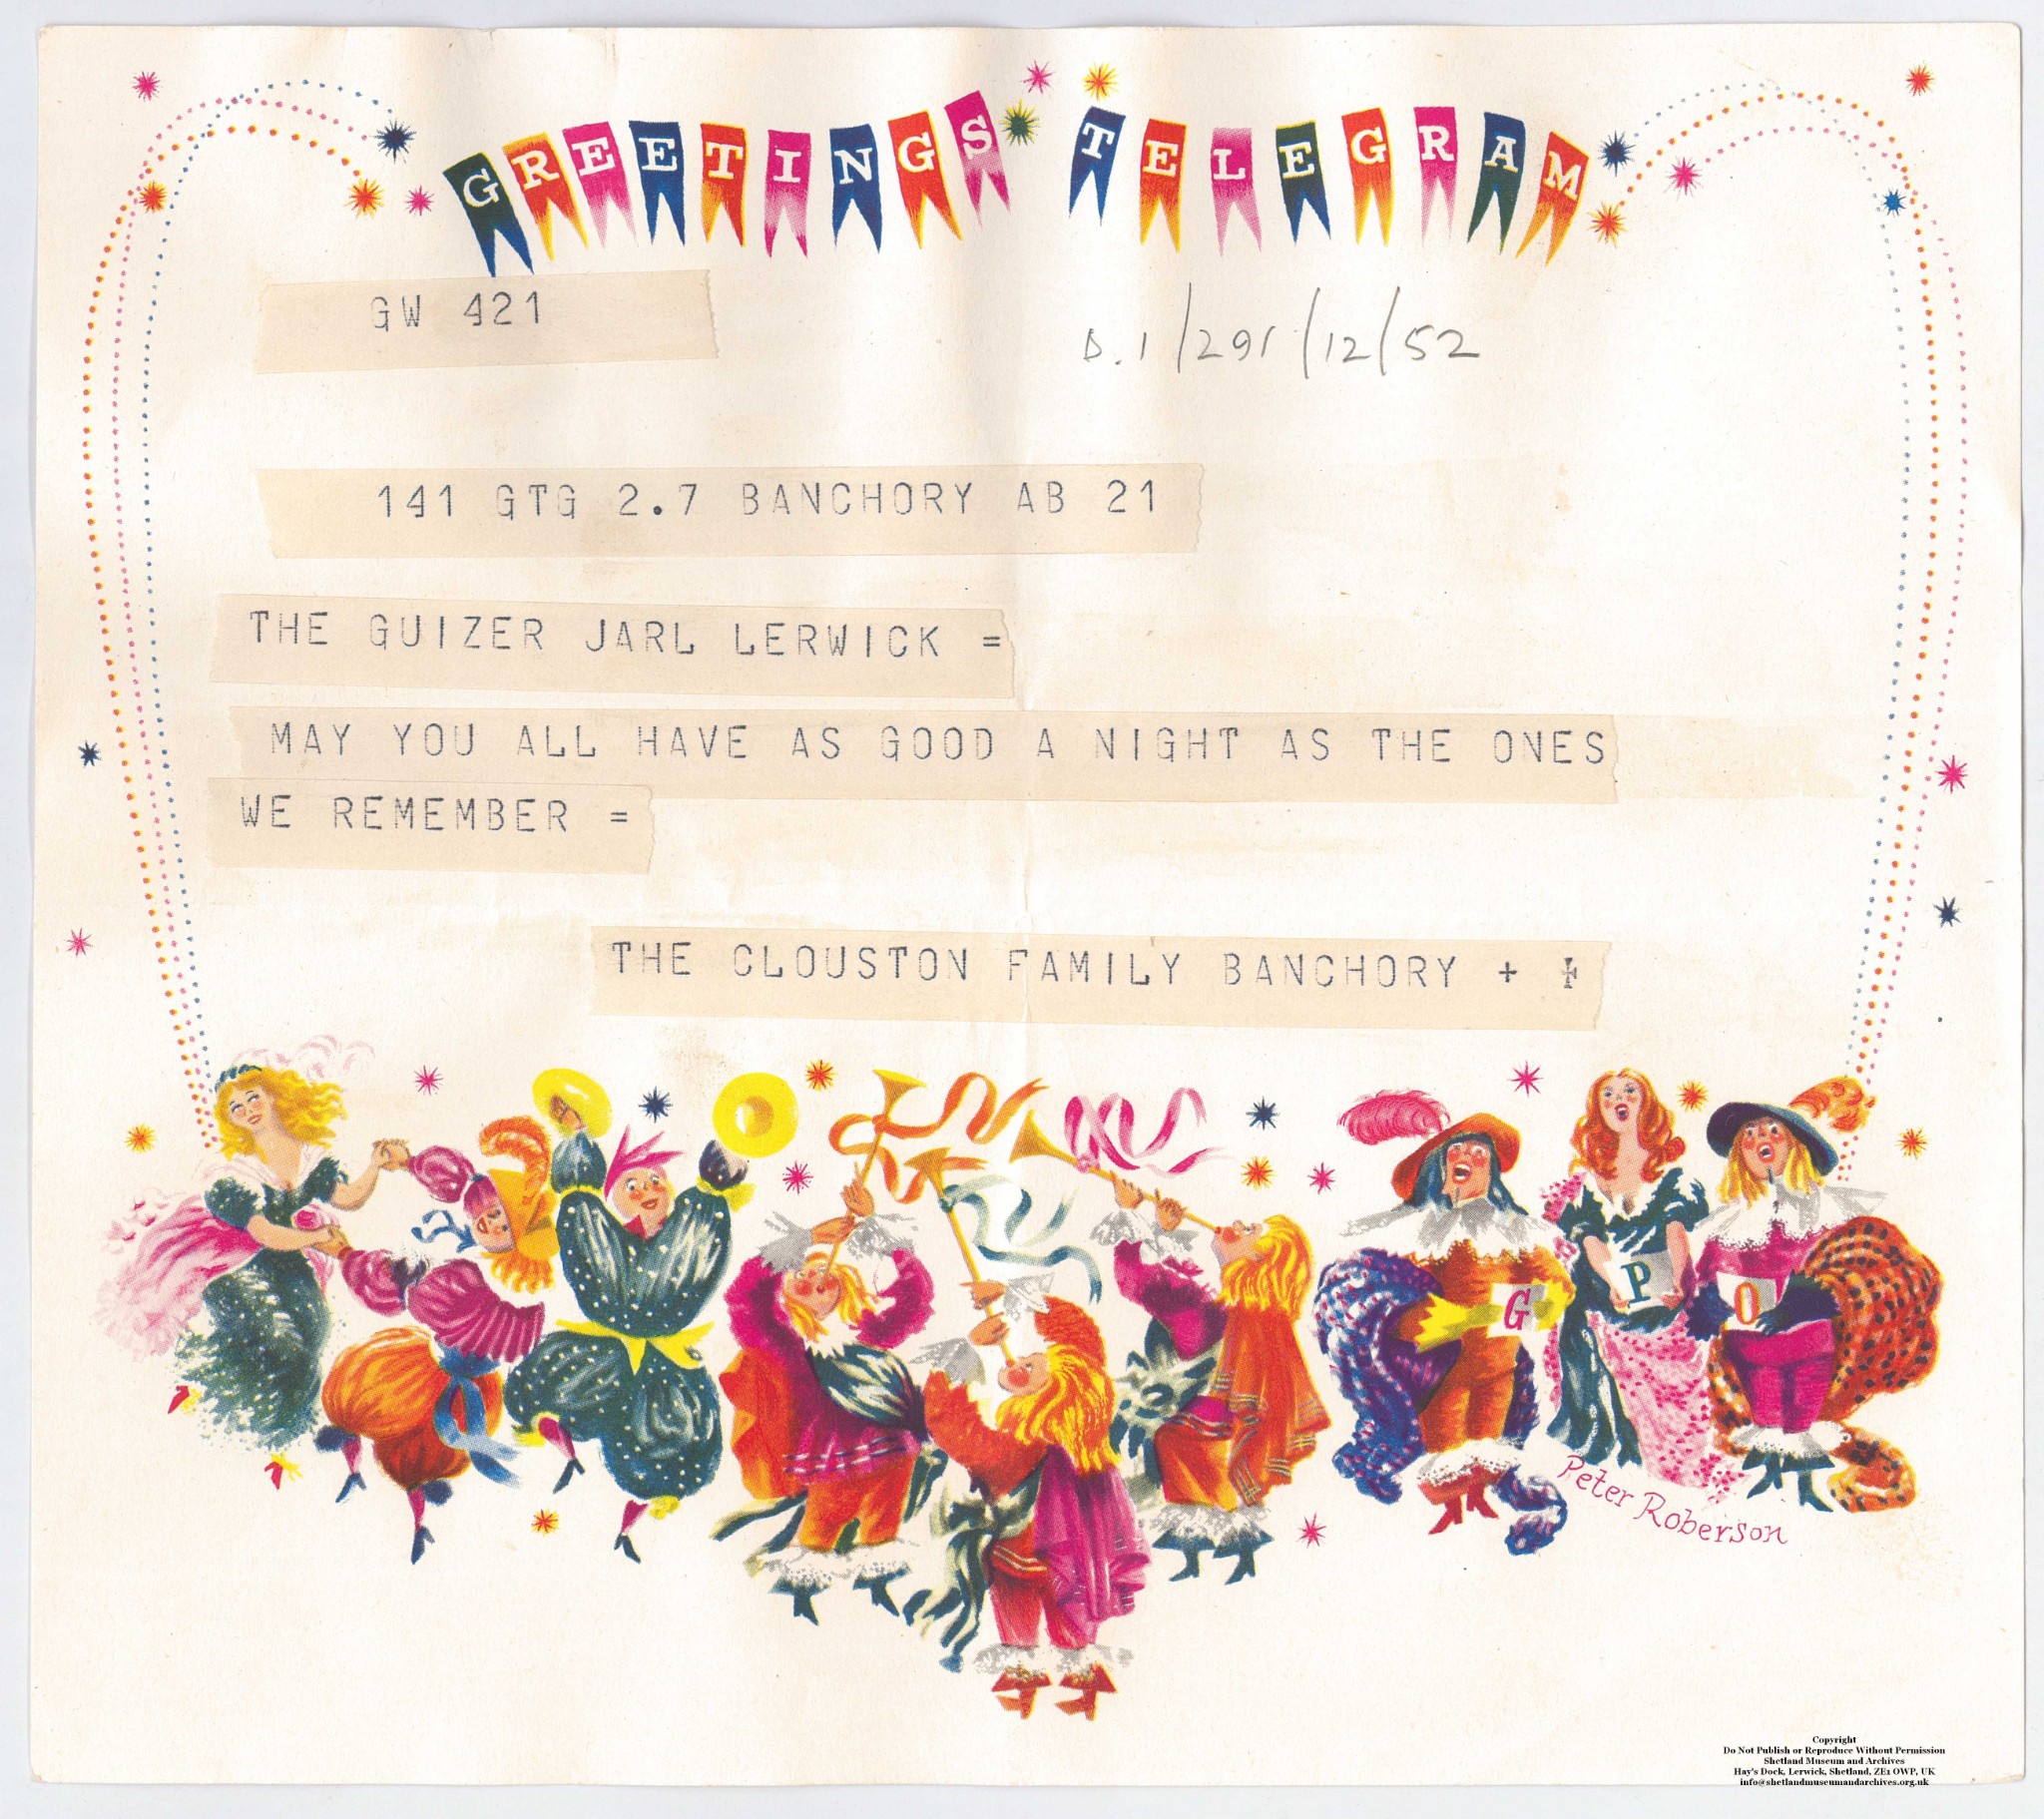 GREETINGS TELEGRAM
GW 421
D.1/291/12/52
141 GTG 2.7 BANCHORY AB 21
THE GUIZER JARL LERWICK =
MAY YOU ALL HAVE AS GOOD A NIGHT AS THE ONES
WE REMEMBER =
THE CLOUSTON FAMILY BANCHORY + +
G P O
Peter Roberson
Copyright
Do Not Publish or Reproduce Without Permission
Shetland Museum and Archives
Hay's Dock, Lerwick, Shetland, ZE1 0WP, UK
info@shetlandmuseumandarchives.org.uk